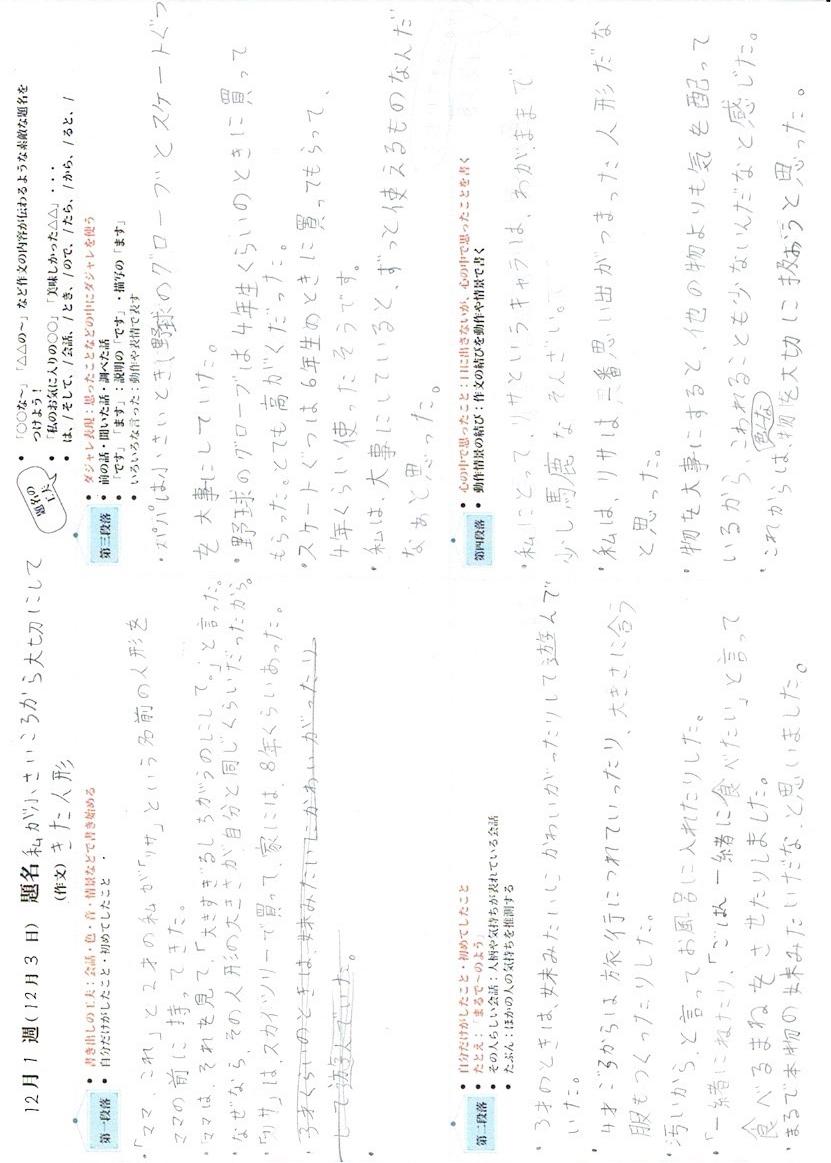 12月1週(12月3日) 題名 私が小さいころから大切にして
(作文) きた人形
題名の
工夫
• 「○○な~」「△△の~」など作文の内容が伝わるような素敵な題名を
つけよう!
• 「私のお気に入りの○○」「美味しかった△△」・・・
• は、/そして、/会話、/とき、/ので、/たら、/から、/ると、/
第一段落
• 書き出しの工夫:会話・色・音・情景などで書き始める
• 自分だけがしたこと・初めてしたこと ・
・「ママ、これ」と2才の私が「リサ」という名前の人形を
ママの前に持ってきた。
・ママは、それを見て、「大きすぎるしちがうのにして。」と言った。
・なぜなら、その人形の大きさが自分と同じくらいだったから。
・「リサ」は、スカイツリーで買って、家には、8年くらいあった。
・3才くらいのときは妹みたいにかわいがったり
して遊んでいた。
第二段落
• 自分だけがしたこと・初めてしたこと
• たとえ:「まるで~のよう」
• その人らしい会話:人柄や気持ちが表れている会話
• たぶん:ほかの人の気持ちを推測する
・3才のときは、妹みたいにかわいがったりして遊んで
いた。
・4才ごろからは旅行につれていったり、大きさに合う
服もつくったりした。
・汚いから、と言ってお風呂に入れたりした。
・「一緒にねたり、「ごはん一緒に食べたい」と言って
食べるまねをさせたりしました。
・まるで本物の妹みたいだな、と思いました。
第三段落
• ダジャレ表現:思ったことなどの中にダジャレを使う
• 前の話・聞いた話・調べた話
• 「です」「ます」:説明の「です」・描写の「ます」
• いろいろな言った:動作や表情で表す
・パパは小さいとき、野球のグローブとスケートぐつ
を大事にしていた。
・野球のグローブは4年生くらいのときに買って
もらった。とても高がくだった。
・スケートぐつは6年生のときに買ってもらって、
4年くらい使ったそうです。
・私は、大事にしていると、ずっと使えるものなんだ
なぁと思った。
第四段落
• 心の中で思ったこと:口に出さないが、心の中で思ったことを書く
• 動作情景の結び:作文の結びを動作や情景で書く
・私にとって、リサというキャラは、わがままで
少し馬鹿なそんざい。
・私は、リサは一番思い出がつまった人形だな
と思った。
・物を大事にすると、他の物よりも気を配って
いるからこわれることも少ないんだなと感じた。
・これからは、色んな物を大切に扱おうと思った。